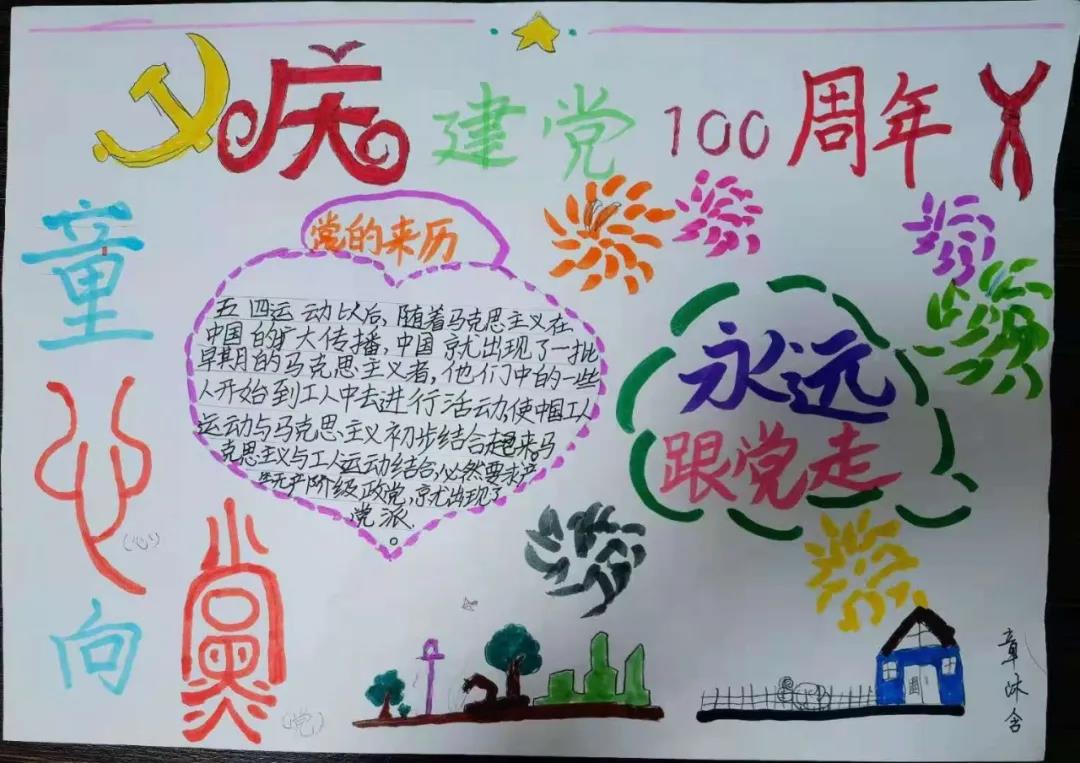 庆建党100周年
童心向党
(心)
(党)
党的来历
五四运动以后,随着马克思主义在
中国的扩大传播,中国就出现了一批
早期的马克思主义者,他们中的一些
人开始到工人中去进行活动,使中国工人
运动与马克思主义初步结合起来。马
克思主义与工人运动结合,必然要求产
生无产阶级政党,就出现了
党派。
永远
跟党走
章沐含